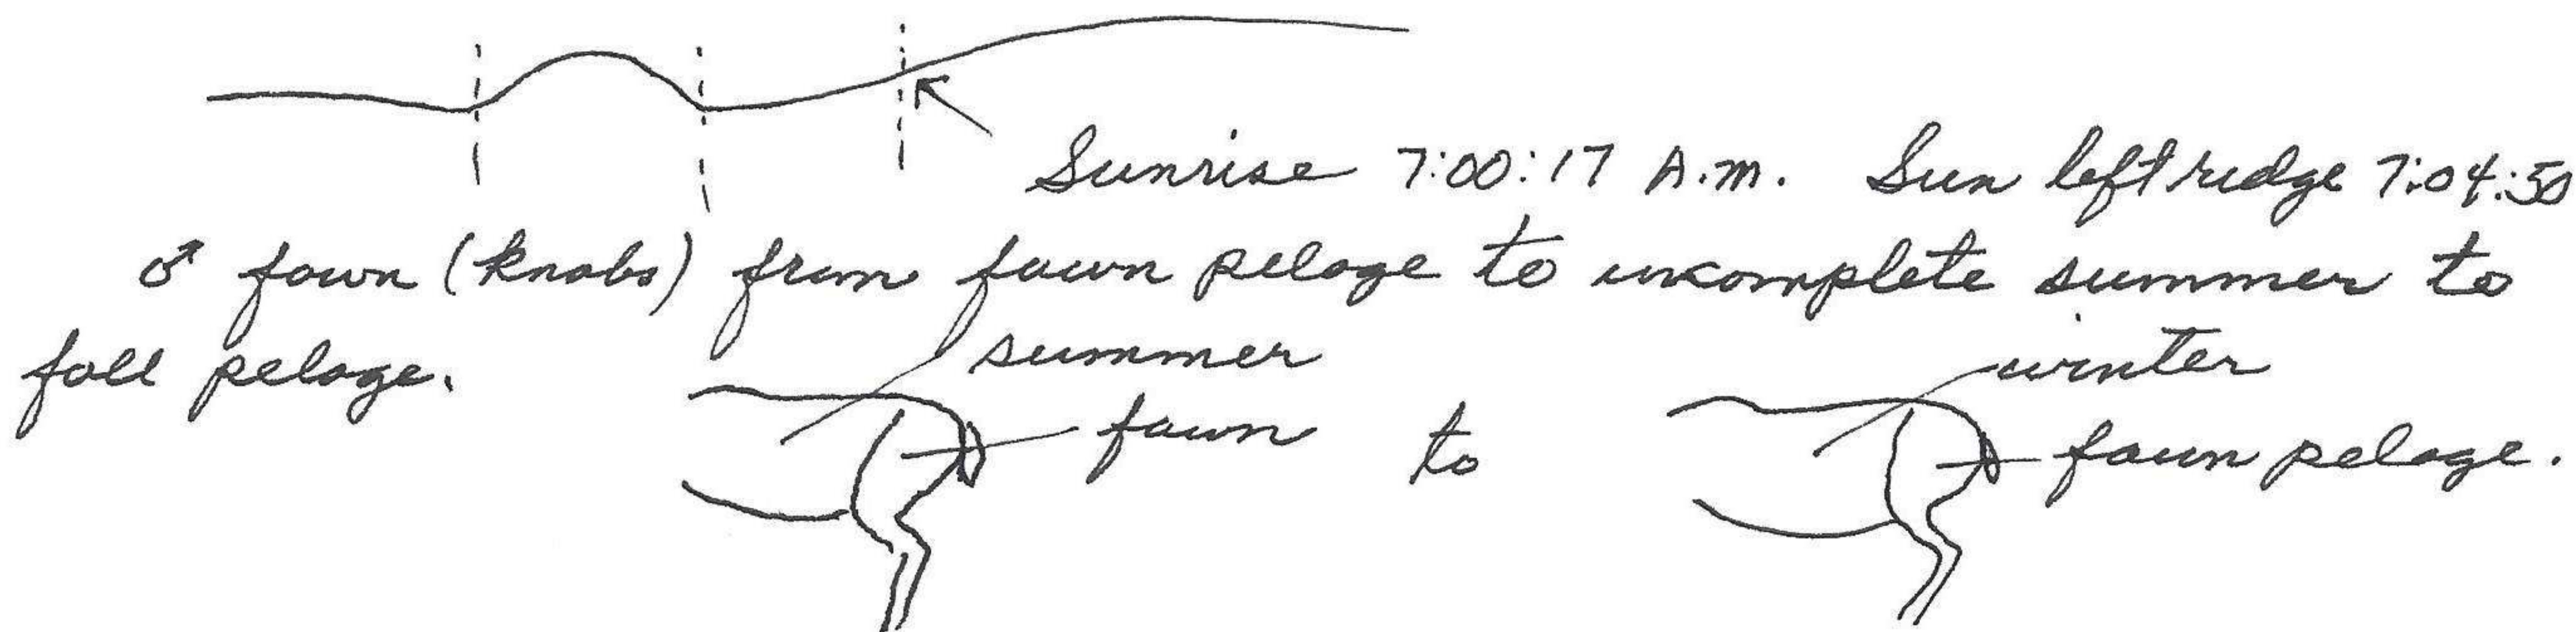 Sunrise 7:00:17 A.M. Sun left ridge 7:04:50
♂ fawn (knobs) from fawn pelage to incomplete summer to
fall pelage.
summer
winter
fawn to fawn pelage.